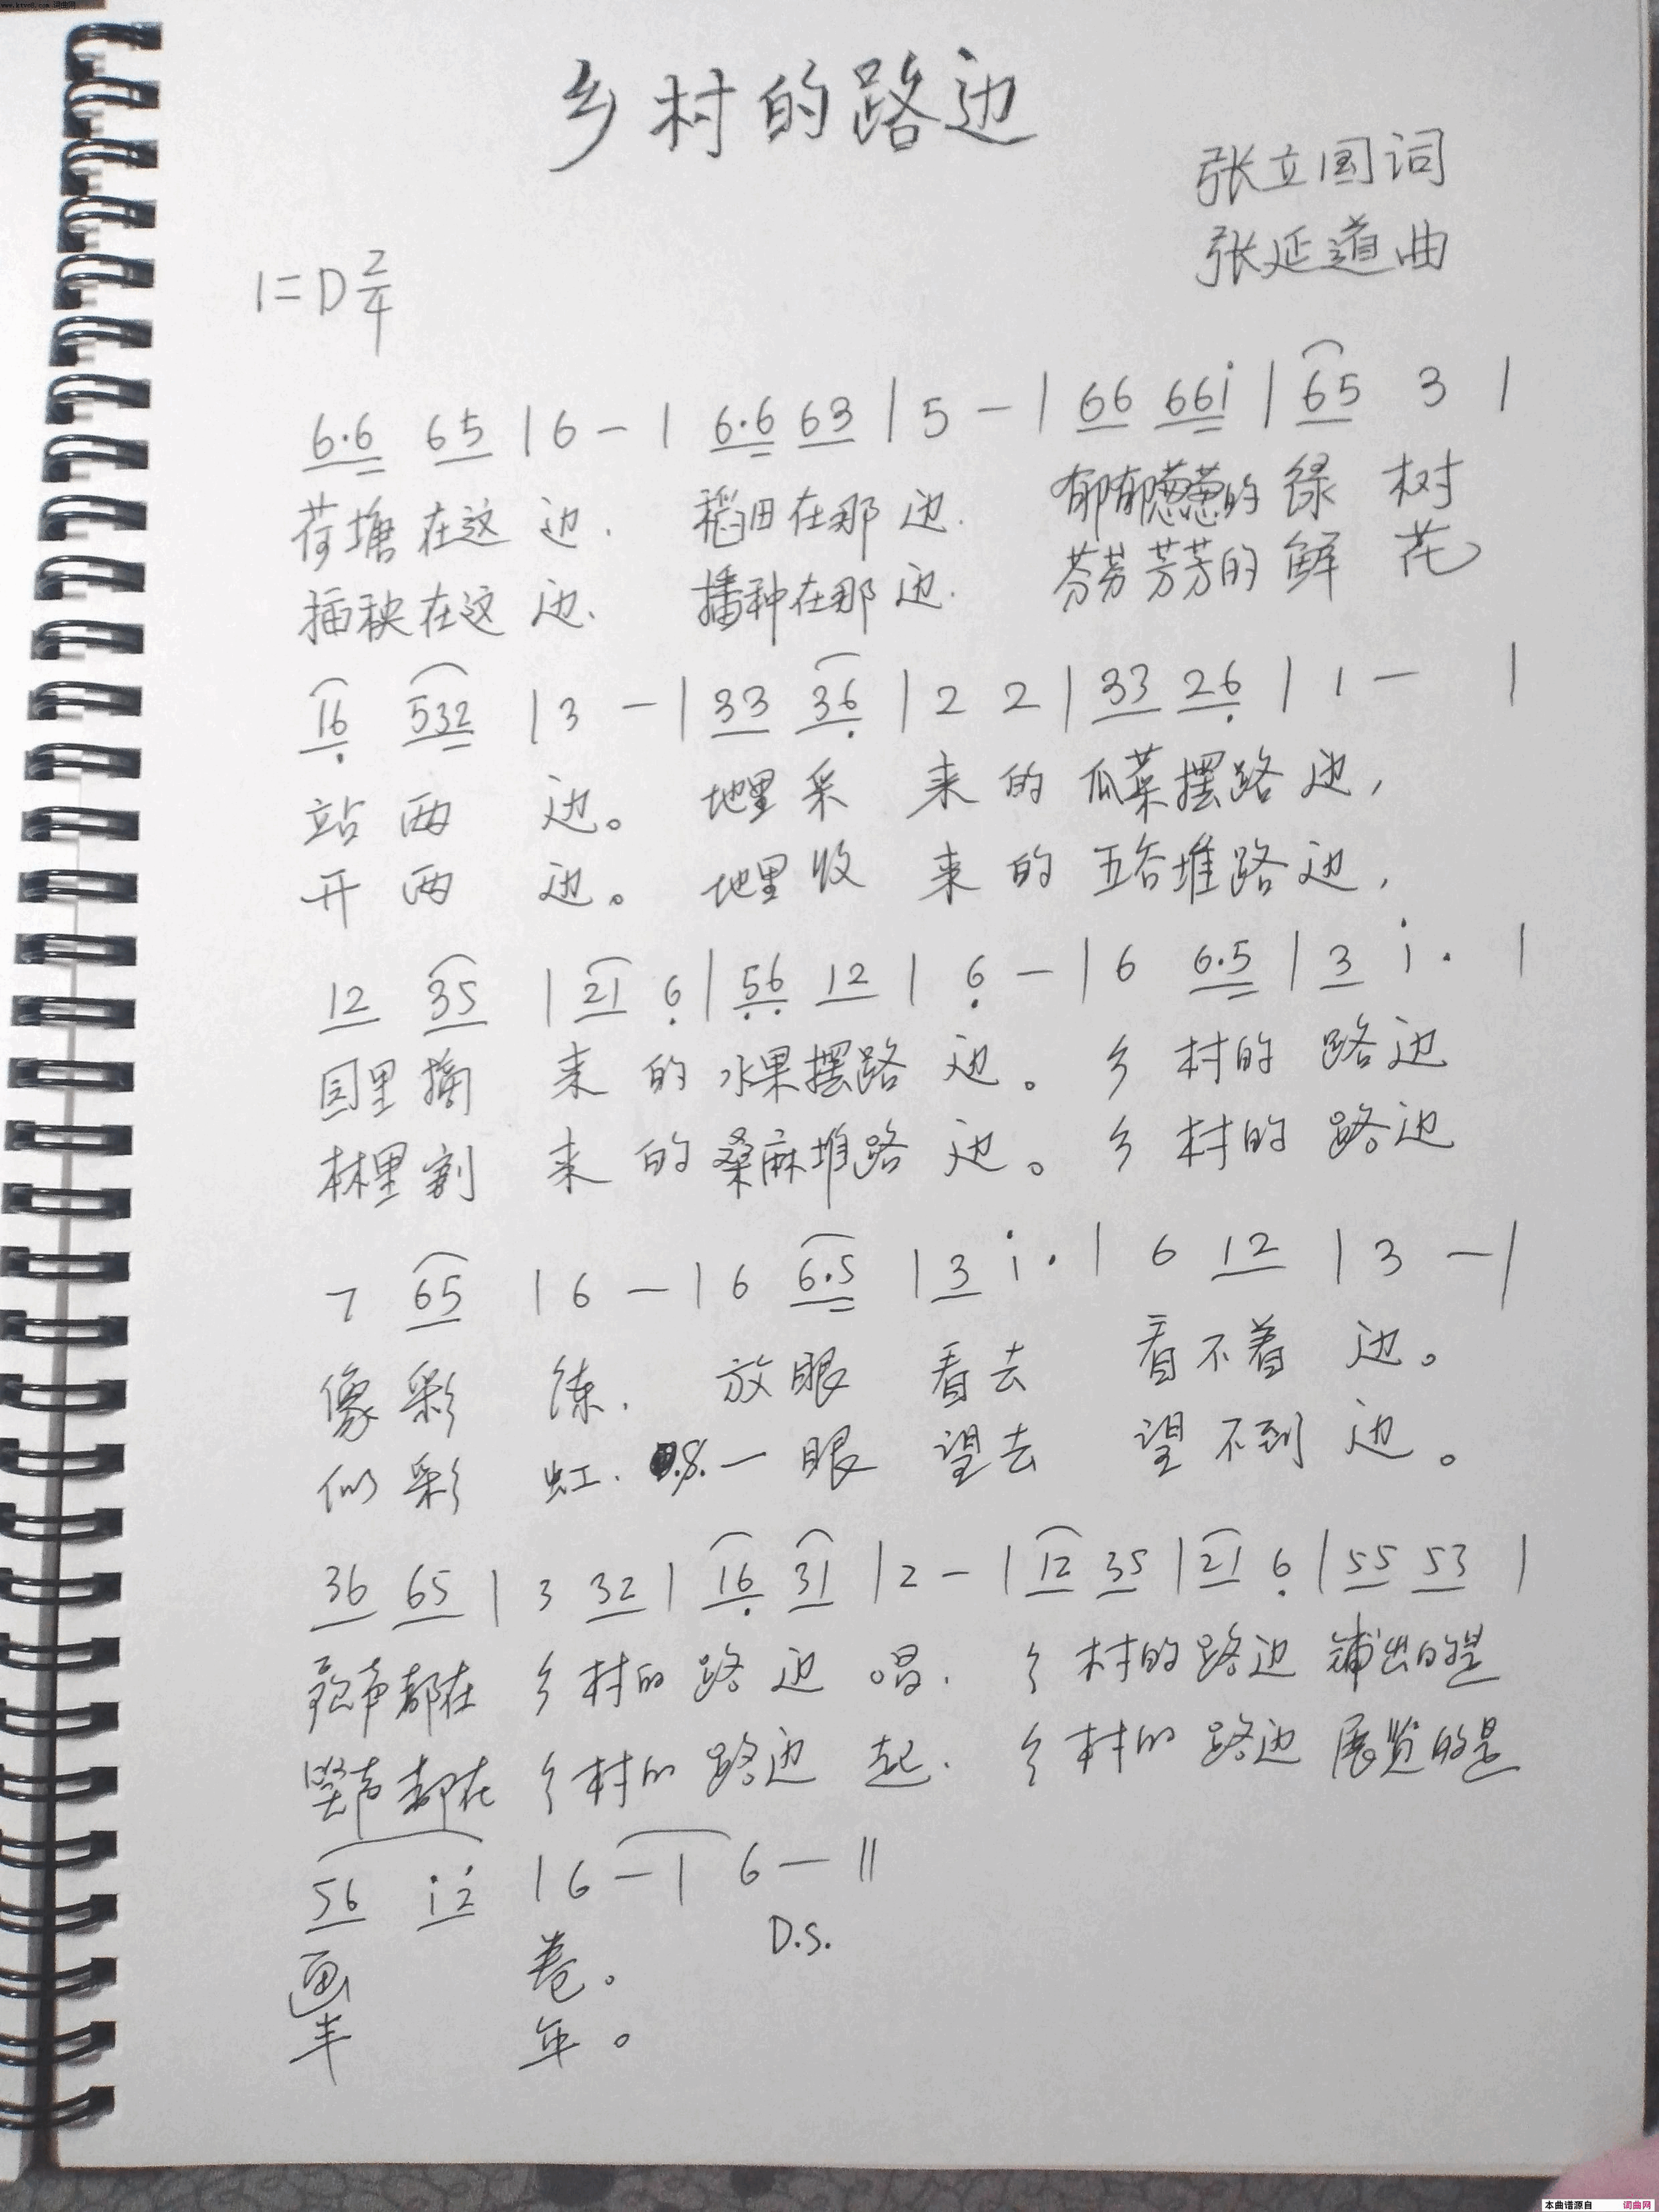 乡村的路边
张立国词
张延道曲
1=D 2/4
6·6 65 | 6 - | 6·6 63 | 5 - | 66 66i | 65 3 |
荷塘在这边. 稻田在那边. 郁郁葱葱的绿树
插秧在这边. 播种在那边. 芬芬芳芳的鲜花
16 532 | 3 - | 33 36 | 2 2 | 33 26 | 1 - |
站两边。 地里采来的瓜菜摆路边,
开两边。 地里收来的五谷堆路边,
12 35 | 21 6 | 56 12 | 6 - | 6 6·5 | 3 i· |
园里摘来的水果摆路边。 乡村的路边
林里割来的桑麻堆路边。 乡村的路边
7 65 | 6 - | 6 6·5 | 3 i· | 6 12 | 3 - |
像彩练. 放眼看去 看不着边。
似彩虹. .S. 一眼望去 望不到边。
36 65 | 3 32 | 16 31 | 2 - | 12 35 | 21 6 | 55 53 |
歌声都在乡村的路边唱. 乡村的路边铺出的是
笑声都在乡村的路边起. 乡村的路边展览的是
56 i2 | 6 - | 6 - ||
D.S.
画卷。
丰年。
本曲谱源自 词曲网